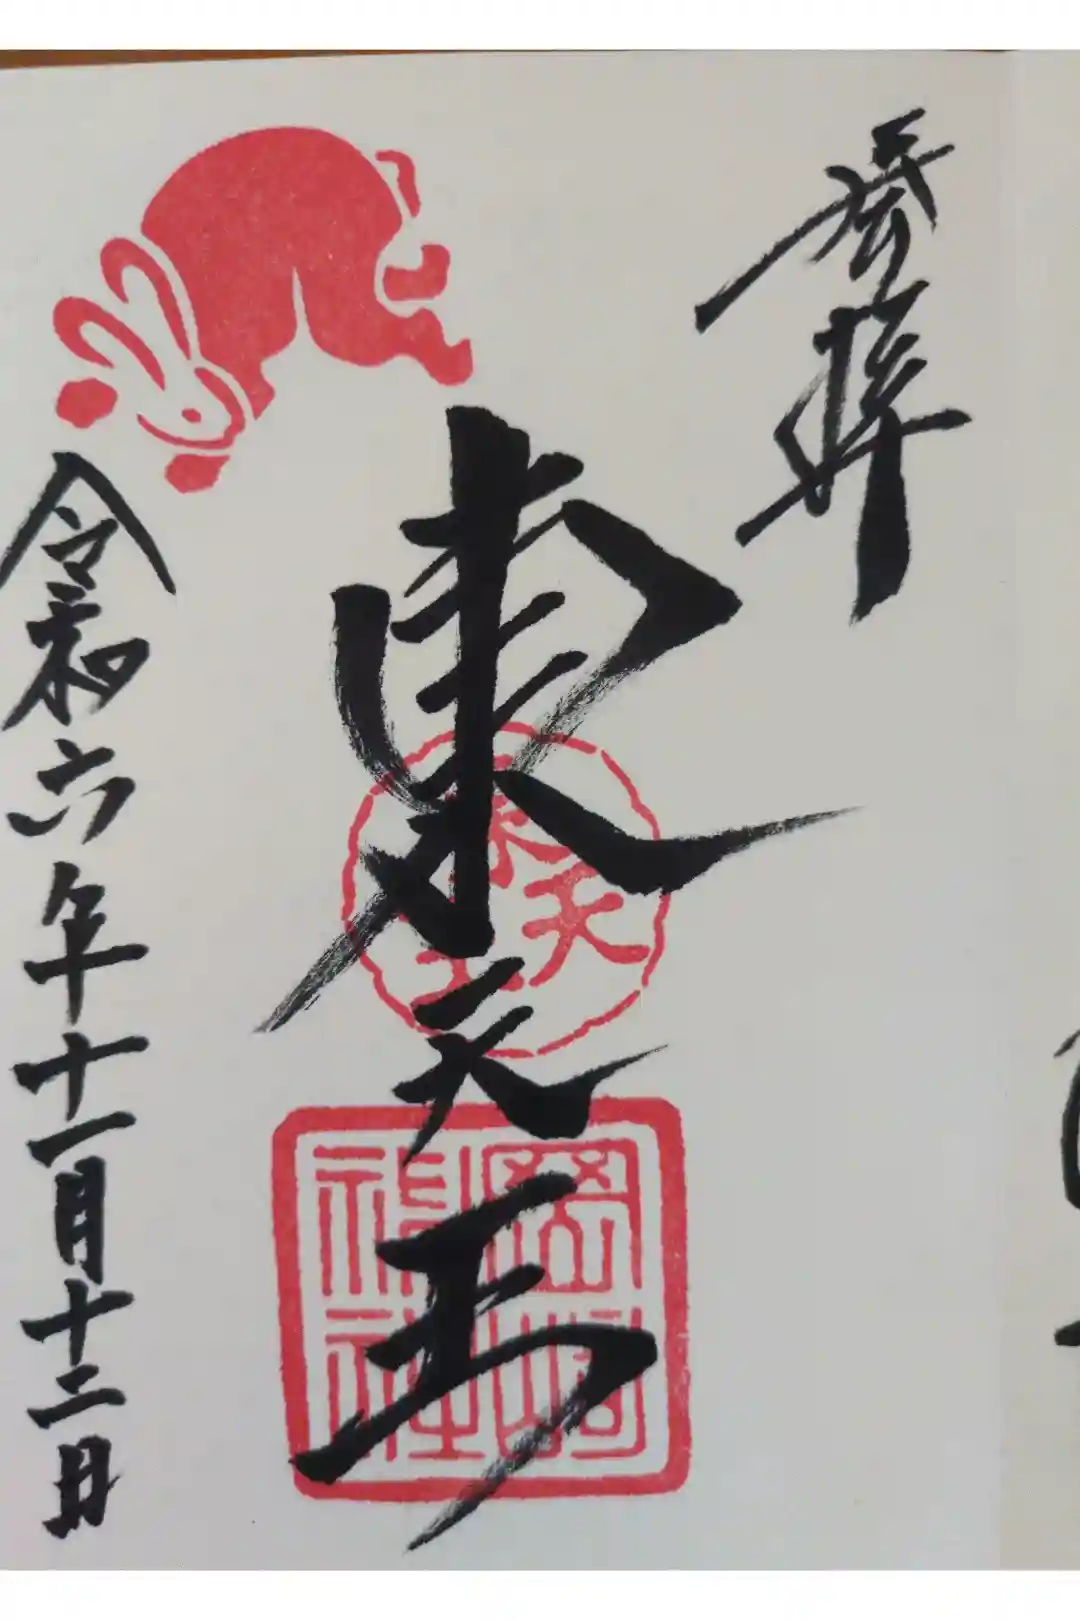 参拝
東天王
東天王
岡崎
神社
令和六年十一月十二日